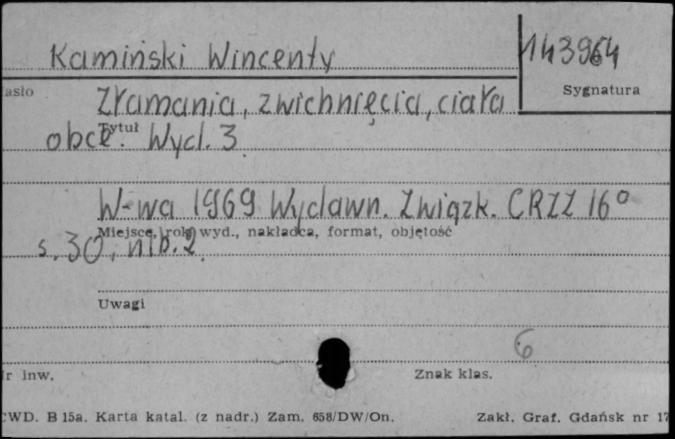 Kamiński Wincenty
143964
asło
Sygnatura
Złamania, zwichnięcia, ciała
Tytuł
obce. Wyd. 3
W-wa 1969 Wydawn. Związk. CRZZ 16°
Miejsce, rok wyd., nakładca, format, objętość
s. 30, nlb. 2
Uwagi
6
r inw.
Znak klas.
WD. B 15a. Karta katal. (z nadr.) Zam. 658/DW/On.
Zakł. Graf. Gdańsk nr 17